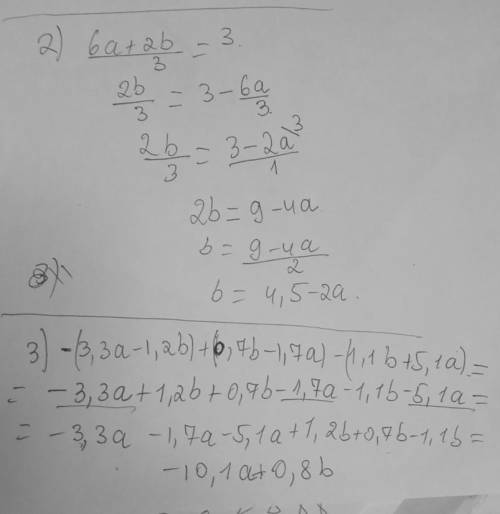 2) 6a+2b/3 = 3.
2b/3 = 3 - 6a/3.
2b/3 = 3-2a\3/1
2b = 9 - 4a
b = 9-4a/2
b = 4,5-2a.
3) -(3,3a-1,2b)+(0,7b-1,7a)-(1,1b+5,1a)=
= -3,3a+1,2b+0,7b-1,7a-1,1b-5,1a=
= -3,3a -1,7a-5,1a+1,2b+0,7b-1,1b=
-10,1a+0,8b